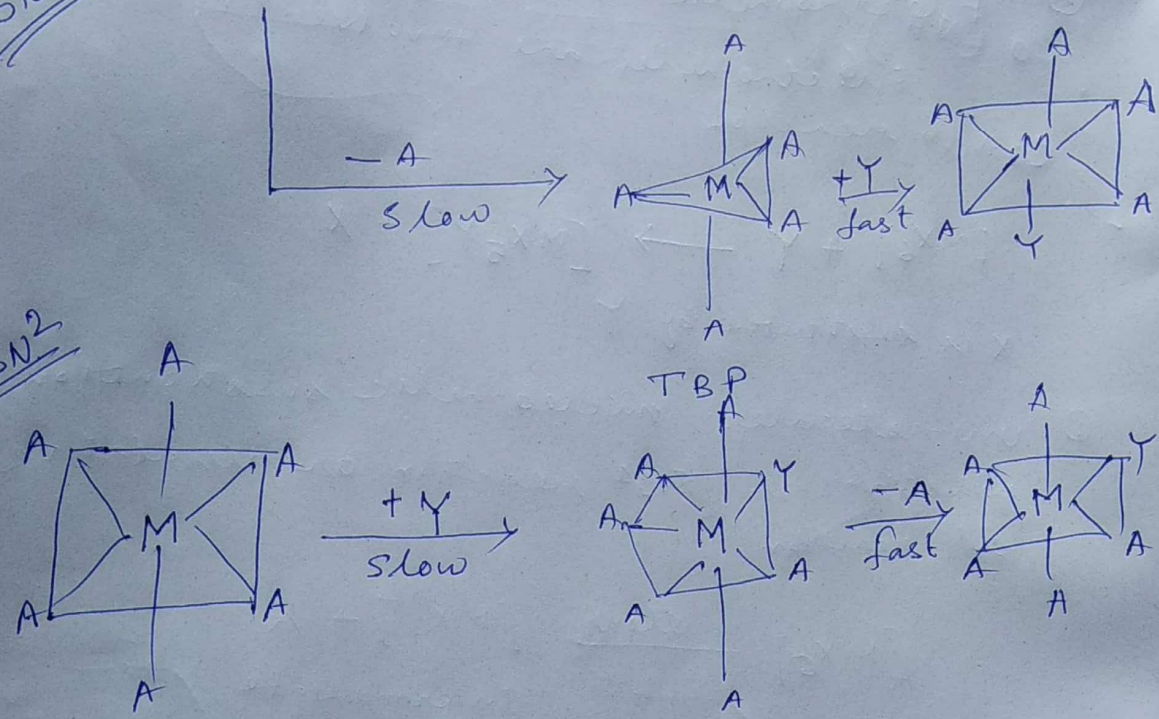 A
A
− A
Slow
A
A
M
A
A
+Y
fast
A
A
M
A
A
Y
TBP
SN²
A
A
A
M
A
A
A
+ Y
Slow
A
A
Y
A
M
A
A
A
− A
fast
A
A
Y
M
A
A
A